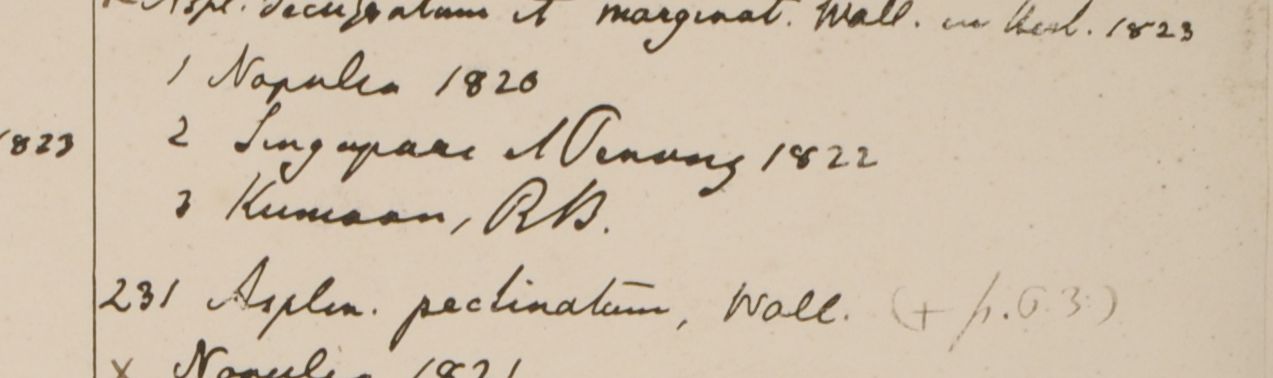 Aspl. decussatum et marginat. Wall. in Herb. 1823
1 Napulia 1820
1823
2 Singapore et Penang 1822
3 Kumaon, RB.
231 Asplen. pectinatum, Wall. (+ p. 63.)
x Napulia 1821